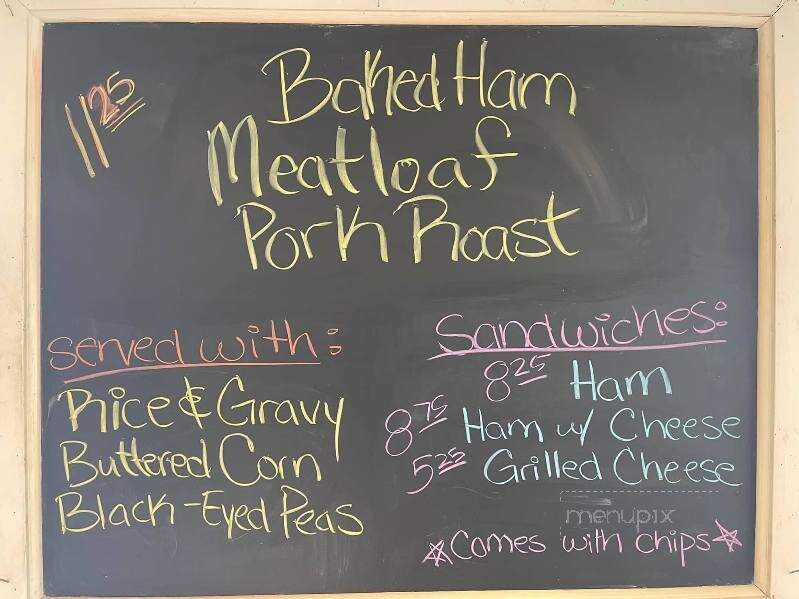 11.25
Baked Ham
Meatloaf
Pork Roast
Served with:
Rice & Gravy
Buttered Corn
Black-Eyed Peas
Sandwiches:
8.25 Ham
8.75 Ham w/ Cheese
5.25 Grilled Cheese
menupix
☆Comes with chips☆